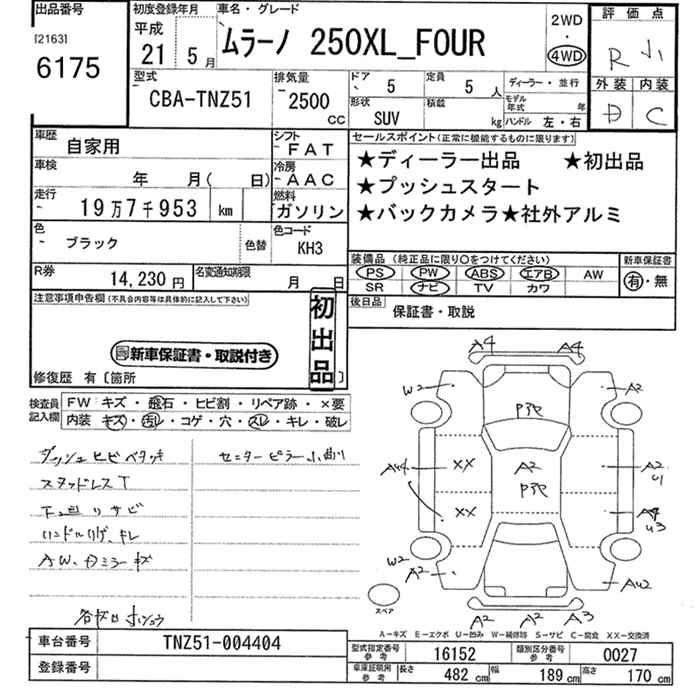 出品番号
[2163]
6175
初度登録年月
平成
21 5月
車名・グレード
ムラーノ 250XL_FOUR
2WD
・
4WD
評価点
R 小
外装 内装
D C
型式
CBA-TNZ51
排気量
2500
CC
ドア 5
定員 5人
形状 SUV
積載 kg
ディーラー・並行
モデル年式 年
ハンドル 左・右
車歴 自家用
シフト FAT
車検 年 月( 日)
冷房 AAC
走行 19万7千953 km
燃料 ガソリン
色 ブラック
色替
色コード KH3
R券 14,230円
名変通知期限 月 日
セールスポイント(正常に機能するものに限ります)
★ディーラー出品 ★初出品
★プッシュスタート
★バックカメラ★社外アルミ
装備品 (純正品に限り○をつけてください)
新車保証書
PS PW ABS エアB AW
SR ナビ TV カワ
有・無
後日品 保証書・取説
注意事項申告欄(不具合内容等は具体的に記入して下さい)
初出品
新車保証書・取説付き
修復歴 有〔箇所 〕
検査員記入欄
FW キズ・飛石・ヒビ割・リペア跡・×要
内装 キズ・汚レ・コゲ・穴・スレ・キレ・破レ
ダッシュヒビベタツキ
センターピラー小曲り
スタッドレスT
下廻リサビ
AW、ドミラーキズ
A4 A4
W2 A2
XX A2
XX A4
W2
A2
A2 A2 A3
スペア
A-キズ E-エクボ U-凹み W-補修跡 S-サビ C-腐食 XX-交換済
車台番号 TNZ51-004404
登録番号
型式指定番号 参考 16152
類別区分番号 参考 0027
車庫証明用 参考 長さ 482cm 幅 189cm 高さ 170cm